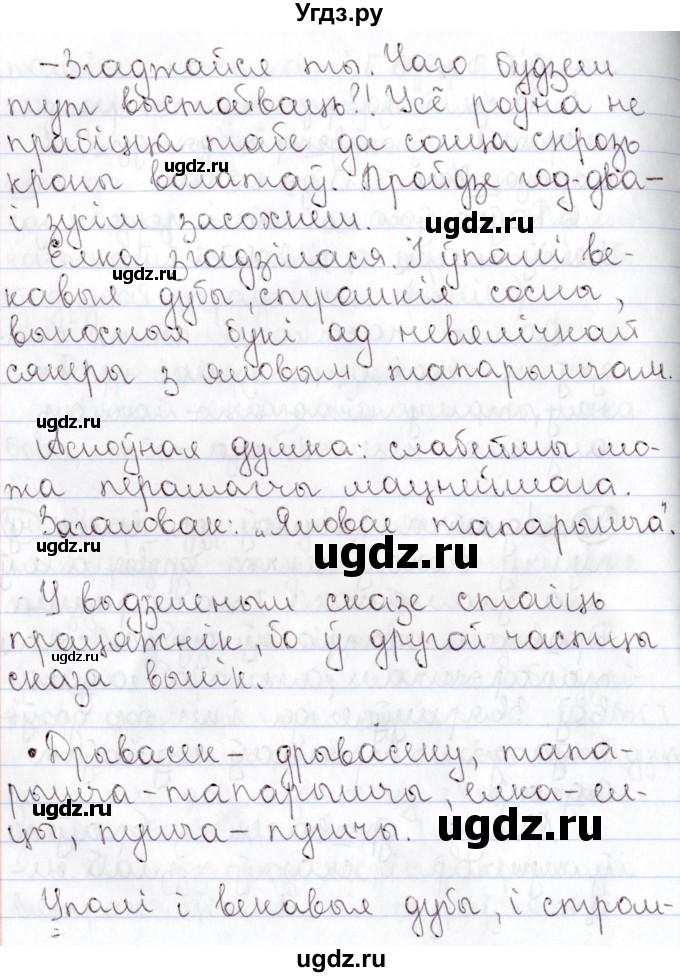 Угдз.ру
– Згаджайся ты. Чаго будзеш
тут выстойваць?! Усё роўна не
прабіцца табе да сонца скрозь
кроны волатаў. Пройдзе год-два –
і зусім засохнеш.
Елка згадзілася. І ўпалі ве-
кавыя дубы, стромкія сосны,
выносныя букі ад невялічкай
сякеры з яловым тапарышчам.
Асноўная думка: слабейшы мо-
жа перамагчы мацнейшага.
Загаловак: „Яловае тапарышча".
У выдзеленым сказе стаіць
працяжнік, бо ў другой частцы
сказа вынік.
• Дрывасек – дрывасеку, тапа-
рышча – тапарышчы, елка – ел-
цы, пушча – пушчы.
Упалі і векавыя дубы, і стром-
ugdz.ru
ugdz.ru
ugdz.ru
ugdz.ru
ugdz.ru
ugdz.ru
ugdz.ru
ugdz.ru
ugdz.ru
ugdz.ru
ugdz.ru